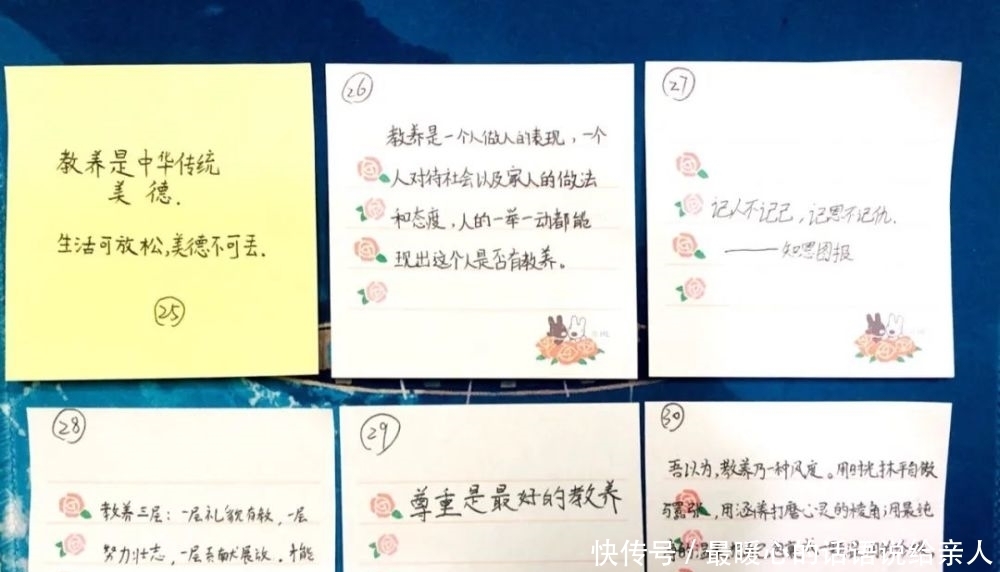 教养是中华传统
美德.
生活可放松,美德不可丢.
25
26
教养是一个人做人的表现，一个
人对待社会以及家人的做法
和态度，人的一举一动都能
现出这个人是否有教养。
27
记人不记己，记恩不记仇.
——知恩图报
28
教养三层：一层礼貌有教，一层
努力壮志，一层贡献展放．才能
29
尊重是最好的教养
30
吾以为，教养乃一种风度。用时光抹平自傲
与嚣张，用涵养打磨心灵的棱角，用最纯
快传号 / 最暖心的话语说给亲人